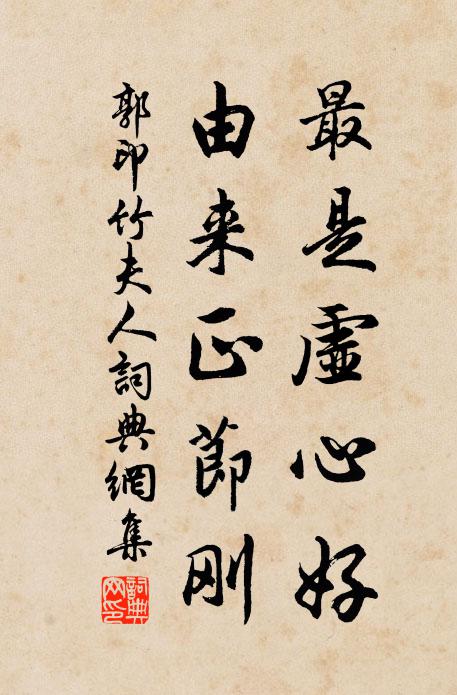 最是虛心好
由来正節刚
郭印竹夫人詞典網集
詞典网印